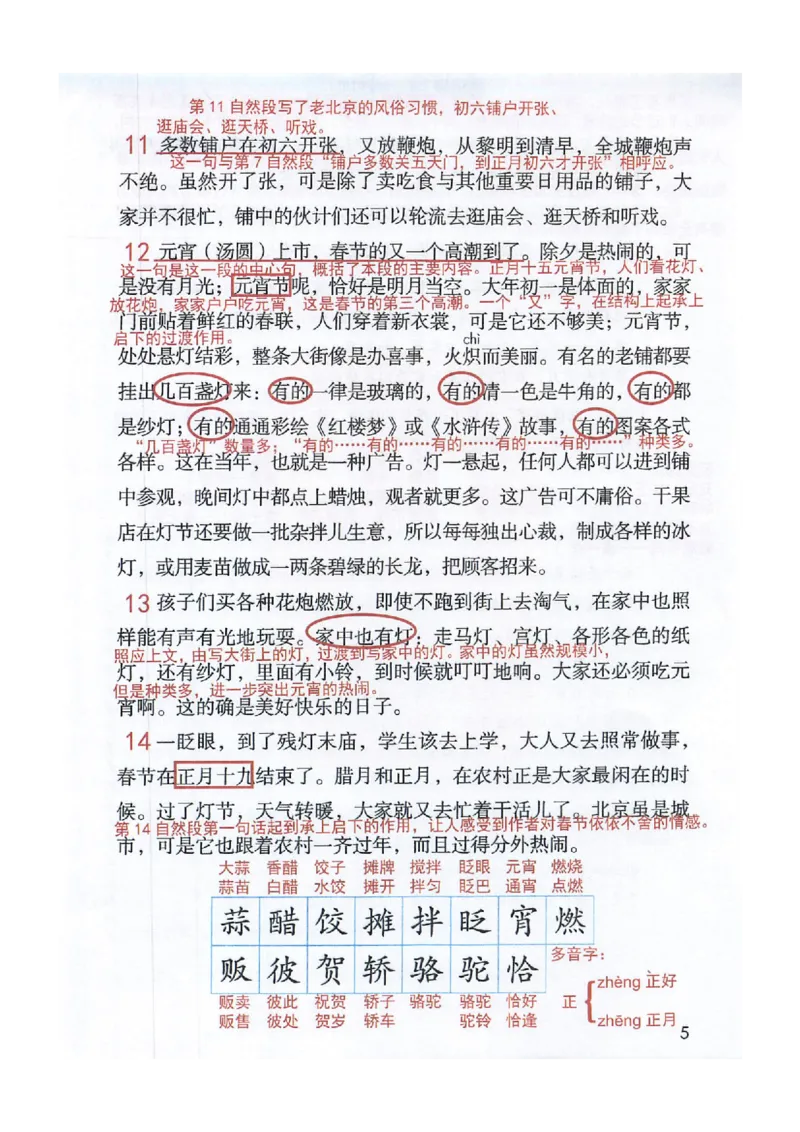 第11自然段写了老北京的风俗习惯，初六铺户开张、
逛庙会、逛天桥、听戏。
11 多数铺户在初六开张，又放鞭炮，从黎明到清早，全城鞭炮声
这一句与第7自然段“铺户多数关五天门，到正月初六才开张”相呼应。
不绝。虽然开了张，可是除了卖吃食与其他重要日用品的铺子，大
家并不很忙，铺中的伙计们还可以轮流去逛庙会、逛天桥和听戏。
12 元宵（汤圆）上市，春节的又一个高潮到了。除夕是热闹的，可
这一句是这一段的中心句，概括了本段的主要内容。正月十五元宵节，人们看花灯、
是没有月光；元宵节呢，恰好是明月当空。大年初一是体面的，家家
放花炮，家家户户吃元宵，这是春节的第三个高潮。一个“又”字，在结构上起承上
门前贴着鲜红的春联，人们穿着新衣裳，可是它还不够美；元宵节，
启下的过渡作用。
chì
处处悬灯结彩，整条大街像是办喜事，火炽而美丽。有名的老铺都要
挂出几百盏灯来：有的一律是玻璃的，有的清一色是牛角的，有的都
是纱灯；有的通通彩绘《红楼梦》或《水浒传》故事，有的图案各式
“几百盏灯”数量多；“有的……有的……有的……有的……有的……”种类多。
各样。这在当年，也就是一种广告。灯一悬起，任何人都可以进到铺
中参观，晚间灯中都点上蜡烛，观者就更多。这广告可不庸俗。干果
店在灯节还要做一批杂拌儿生意，所以每每独出心裁，制成各样的冰
灯，或用麦苗做成一两条碧绿的长龙，把顾客招来。
13 孩子们买各种花炮燃放，即使不跑到街上去淘气，在家中也照
样能有声有光地玩耍。家中也有灯：走马灯、宫灯、各形各色的纸
照应上文，由写大街上的灯，过渡到写家中的灯。家中的灯虽然规模小，
灯，还有纱灯，里面有小铃，到时候就叮叮地响。大家还必须吃元
但是种类多，进一步突出元宵的热闹。
宵啊。这的确是美好快乐的日子。
14 一眨眼，到了残灯末庙，学生该去上学，大人又去照常做事，
春节在正月十九结束了。腊月和正月，在农村正是大家最闲在的时
候。过了灯节，天气转暖，大家就又去忙着干活儿了。北京虽是城
第14自然段第一句话起到承上启下的作用，让人感受到作者对春节依依不舍的情感。
市，可是它也跟着农村一齐过年，而且过得分外热闹。
大蒜 香醋 饺子 摊牌 搅拌 眨眼 元宵 燃烧
蒜苗 白醋 水饺 摊开 拌匀 眨巴 通宵 点燃
蒜 醋 饺 摊 拌 眨 宵 燃
贩 彼 贺 轿 骆 驼 恰
多音字：
贩卖 彼此 祝贺 轿子 骆驼 骆驼 恰好
贩售 彼处 贺岁 轿车 驼铃 恰逢
正
zhèng 正好
zhēng 正月
5